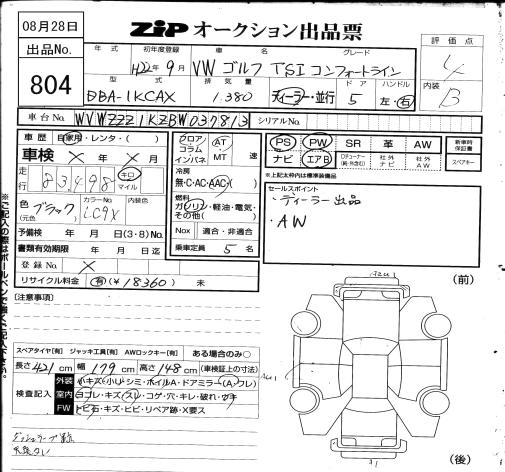 08月28日
出品No.
804
ZIP オークション出品票
評価点
4
内装
B
年式 初年度登録 車名 グレード
H22年9月 VW ゴルフ TSI コンフォートライン
型式 排気量 ドア ハンドル
DBA-1KCAX 1,380 ディーラー・並行 5 左・右
車台No. WVWZZZ1KZBW037813 シリアルNo.
車歴 自家用・レンタ・( )
車検 × 年 × 月
走行 83498 キロ マイル
色(元色) ブラック カラーNo. LC9X 内装色
予備検 年 月 日(3・8)No.
書類有効期限 年 月 日迄
登録No. ×
リサイクル料金 有(¥18360) 未
フロア コラム インパネ AT MT 速
冷房 無・C・AC・AAC・( )
燃料 ガソリン・軽油・電気・その他( )
Nox 適合・非適合
乗車定員 5 名
PS PW SR 革 AW
ナビ エアB Dチューナー(純・社外含む) 社外ナビ 社外AW
新車時保証書
スペアキー
※上記太枠内は標準装備品
セールスポイント
・ディーラー出品
・AW
【注意事項】
スペアタイヤ[有] ジャッキ工具[有] AWロックキー[有] ある場合のみ○
長さ 421 cm 幅 179 cm 高さ 148 cm (車検証上の寸法)
検査記入
外装 小キズ・小U・シミ・ホイルA・ドアミラー(A・ワレ)
室内 ヨゴレ・キズ・スレ・コゲ・穴・キレ・破れ・ウキ
FW トビ石・キズ・ヒビ・リペア跡・X要ス
(前)
(後)
A2U1
A1
※ご記入の際はボールペンで強くご記入下さい。